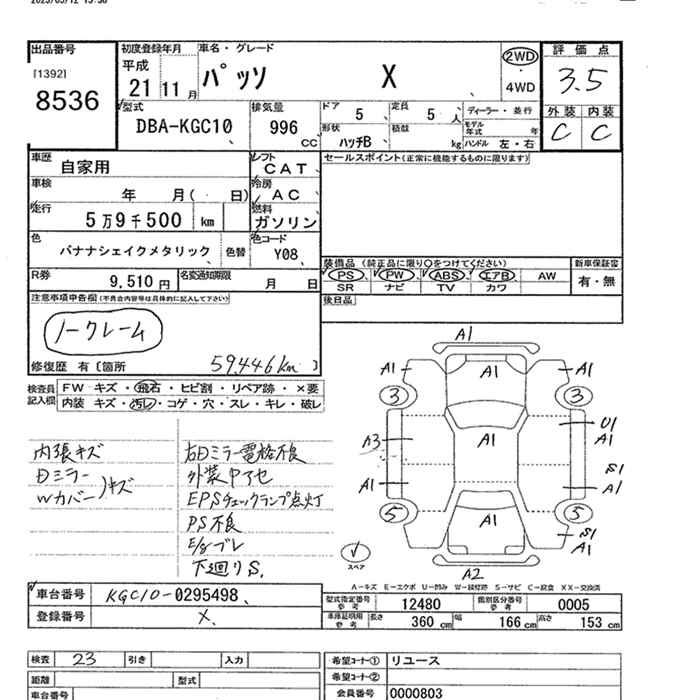 出品番号
[1392]
8536
初度登録年月
平成
21 11月
車名・グレード
パッソ X
2WD
・
4WD
評価点
3.5
外装 内装
C C
型式
DBA-KGC10
排気量
996
CC
ドア 5
定員 5 人
形状 ハッチB
積載 kg
ディーラー・並行
モデル年式 年
ハンドル 左・右
車歴 自家用
シフト CAT
車検 年 月( 日)
冷房 AC
走行 5万9千500 km
燃料 ガソリン
色 バナナシェイクメタリック 色替
色コード Y08
R券 9,510円
名変通知期限 月 日
セールスポイント(正常に機能するものに限ります)
装備品(純正品に限り○をつけてください)
新車保証書
PS PW ABS エアB AW
SR ナビ TV カワ
有・無
後日品
注意事項申告欄(不具合内容等は具体的に記入して下さい)
ノークレーム
修復歴 有〔箇所 59446km〕
検査員記入欄
FW キズ・飛石・ヒビ割・リペア跡・×要
内装 キズ・汚レ・コゲ・穴・スレ・キレ・破レ
内張キズ
Dミラー
Wカバー)キズ
右Dミラー電格不良
外装中アセ
EPSチェックランプ点灯
PS不良
E/gブレ
下廻りS.
A1
A1 A1 A1
3 3
U1
A1
A3 A1
S1
A1 A1
5 5
A1
S1
A1
A2
スペア
A-キズ E-エクボ U-凹み W-補修跡 S-サビ C-腐食 XX-交換済
車台番号 KGC10-0295498
登録番号 X
型式指定番号 参考 12480
類別区分番号 参考 0005
車庫証明用 参考 長さ 360 cm 幅 166 cm 高さ 153 cm
検査 23 引き 入力
距離 型式
車台番号
希望コーナー① リユース
希望コーナー②
会員番号 0000803